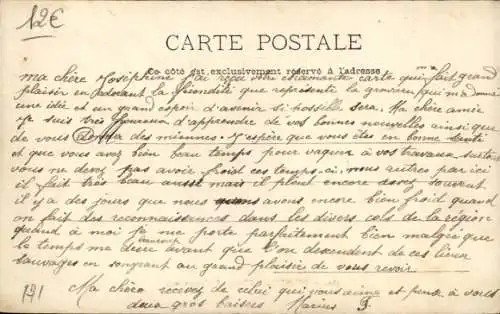 12€
CARTE POSTALE
Ce côté est exclusivement réservé à l'adresse
ma chère Joséphine j'ai reçu votre charmante carte qui m'a fait grand
plaisir en voyant la que représente la gravure qui m'a donné
une idée et un grand espoir d'avenir si possible sera. Ma chère amie
Je suis très heureux d'apprendre de vos bonnes nouvelles ainsi que
de vous donner des miennes. J'espère que vous êtes en bonne santé
et que vous avez bien beau temps pour vaquer à vos travaux
vous ne devez pas avoir froid ces temps-ci, nous autres par ici
il fait très beau aussi mais il pleut encore assez souvent
il y a des jours que nous avons encore bien froid quand
on fait des reconnaissances dans les divers cols de la région
quand à moi je me porte parfaitement bien malgré que
le temps me dure avant que l'on descendent de ces lieux
sauvages en songeant au grand plaisir de vous revoir
Ma chère recevez de celui qui vous aime et pense à vous
deux gros baisers Marius F.
191